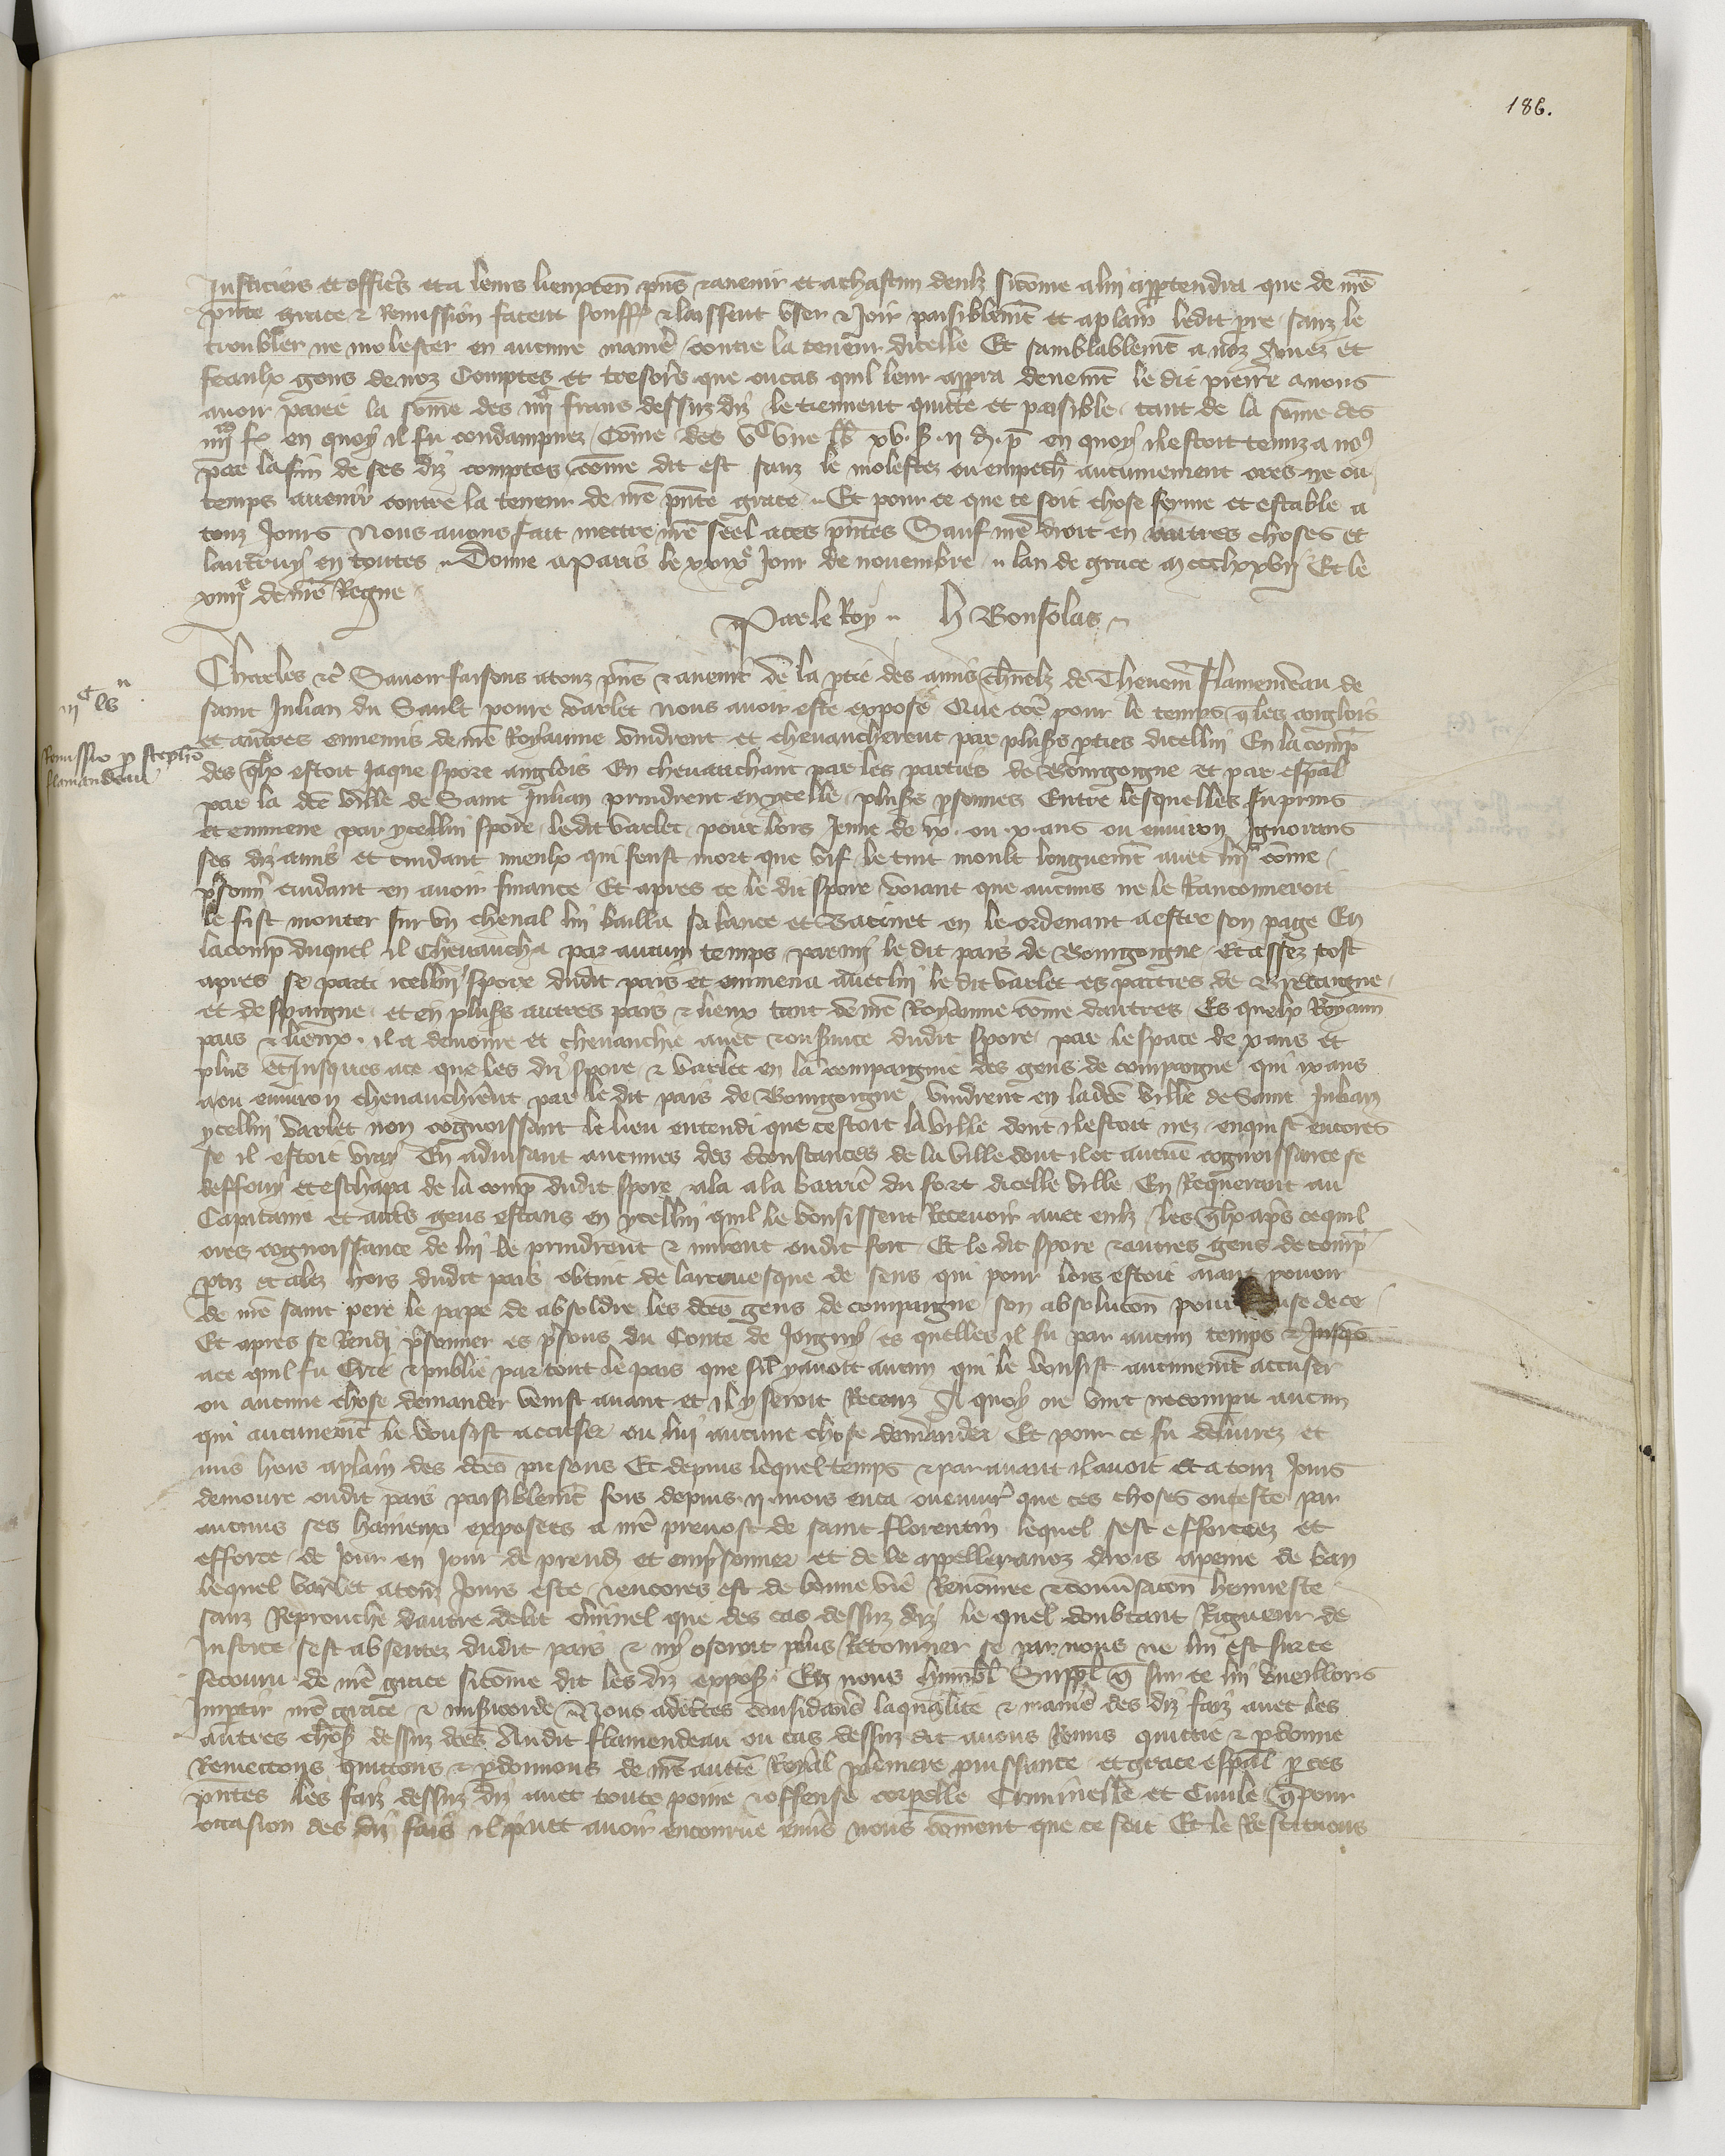 186.
Justiciers et officrs et a leurs lieuxten pns et avenir et a chascun deulz sicome a lui appartendra que de nre
pnte grace et Remission facent souffr et laissent user et Joir paisiblemt et a plain ledit pre sanz le
troubler ne molester en aucune maniere contre la teneur dicelle Et samblablemt a noz amez et
feaulx gens de noz Comptes et tresorrs que ou cas quil leur apperra deuemt le dit pierre avons
avoir paiee la some des frans dessuz diz le tiennent quitte et paisible tant de la some des
en quoy il fu condampnez Come des en quoy il estoit tenuz a no
par la fin de ses diz comptes come dit est sanz le molester ou empesch aucunement ores ne ou
temps avenir contre la teneur de nre pnte grace Et pour ce que ce soit chose ferme et estable a
touz Jours Nous avons fait mettre nre seel a ces pntes Sauf nre droit en autres choses et
lautruy en toutes Donne a Paris le xxix Jour de novembre lan de grace m ccclxxvij Et le
xiiij de nre Regne
Par le Roy H Bonsolas
Charles etc Savoir faisons a touz pns et avenir De la ptie des amis charnelz de Thevenin Flamendeau de
saint Julian du Sault povre varlet nous avoir este expose Que come pour le temps q les anglois
et autres ennemis de nre Royaume vindrent et chevaucherent par pluss pties dicellui En la comp
des qlx estoit Jaque Spore anglois En chevauchant par les parties de Bourgoigne et par espal
par la dce ville de Saint Julian prindrent en ycelle pluss psonnes Entre lesquelles fu prins
et emmene par ycellui Spore ledit varlet pour lors Jeune de ix ou x ans ou environ Ignorans
ses diz amis et cuidant mieulx qui feust mort que vif le tint moult longuemt avec lui come
psonnr cuidant en avoir finance Et apres ce le dit Spore voiant que aucuns ne le Ranconneroit
le fist monter sur un cheval lui bailla sa lance et Bacinet en le ordenant a estre son page En
la comp duquel il Chevaucha par aucun temps parmi le dit pais de Bourgoigne Et assez tost
apres se parti icellui Spore dudit pais et emmena avec lui le dit varlet es parties de Bretaigne
et despaigne et en pluss autres pais et lieux tant de nre Royaume come dautres Es quelx Royaum
pais et lieux il a demoure et chevauchie avec et ou service dudit Spore par lespace de x ans et
plus Et Jusques a ce que les diz Spore et varlet en la compaignie des gens de compaigne qui ix ans
a ou environ chevauchierent par le dit pais de Bourgoigne vindrent en la dce ville de Saint Julian
ycellui varlet non cognoissant le lieu entendi que cestoit la ville dont il estoit nez enquist encores
se il estoit vray En advisant aucunes des circonstances de la ville dont il ot aucune cognoissance se
deffouy et eschapa de la comp dudit Spore ala a la barriere du fort dicelle ville En Requerant au
Capitaine et autres gens estans en ycellui quil le voulsissent Recevoir avec eulz les qlx apres ce quil
ores cognoissance de lui le prindrent et mirent oudit fort Et le dit Spore et autres gens de comp
ptiz et alez hors dudit pais obtint de larcevesque de Sens qui pour lors estoit aiant povoir
de nre saint pere le pape de absoldre les dces gens de compaigne son absolucon pour cause de ce
Et apres se Rendi prisonnier es prisons du Conte de Joigny es quelles il fu par aucun temps et Jusqs
a ce quil fu Crie et publie par tout le pais que sil y avoit aucun qui le voulsist aucunemt accuser
ou aucune chose demander venist avant et il y seroit Receuz A quoy ne vint ne comparu aucun
qui aucunemt le voulsist accuser ou lui aucune chose demander Et pour ce fu delivrez et
mis hors a plain des dces prisons Et depuis lequel temps et par avant il avoit et a touz Jours
demoure oudit pais paisiblemt fors depuis ij mois enca ou environ que ces choses ont este par
aucuns ses haineux exposees a nre prevost de saint Florentin lequel sest efforciez et
efforce de Jour en Jour de prendre et emprisonner et de le appeller a noz drois a peine de ban
lequel varlet a touz Jours este et encores est de bonne vie Renommee et conversacon honneste
sanz Reprouche dautre delit criminel que des cas dessuz diz le quel doubtant Rigueur de
Justice sest absentez dudit pais et ny oseroit plus Retourner se par nous ne lui est sur ce
secouru de nre grace sicome dit les diz expos En nous humbl Suppl q sur ce lui vueillons
Impartir nre grace et misericorde Nous adcertes considerans la qualite et maniere des diz faiz avec les
autres choses dessuz dces Audit Flamendeau ou cas dessuz dit avons Remis quittie et pdonne
Remettons quittons et pdonnons de nre auctte Royal planiere puissance et grace espal p ces
pntes les faiz dessuz diz avec toute peine et offense corporelle Criminelle et Civile q pour
occasion des diz fais il puet avoir encourue envers nous coment que ce soit Et le Restituons
Remissio p stepho
flamandeau